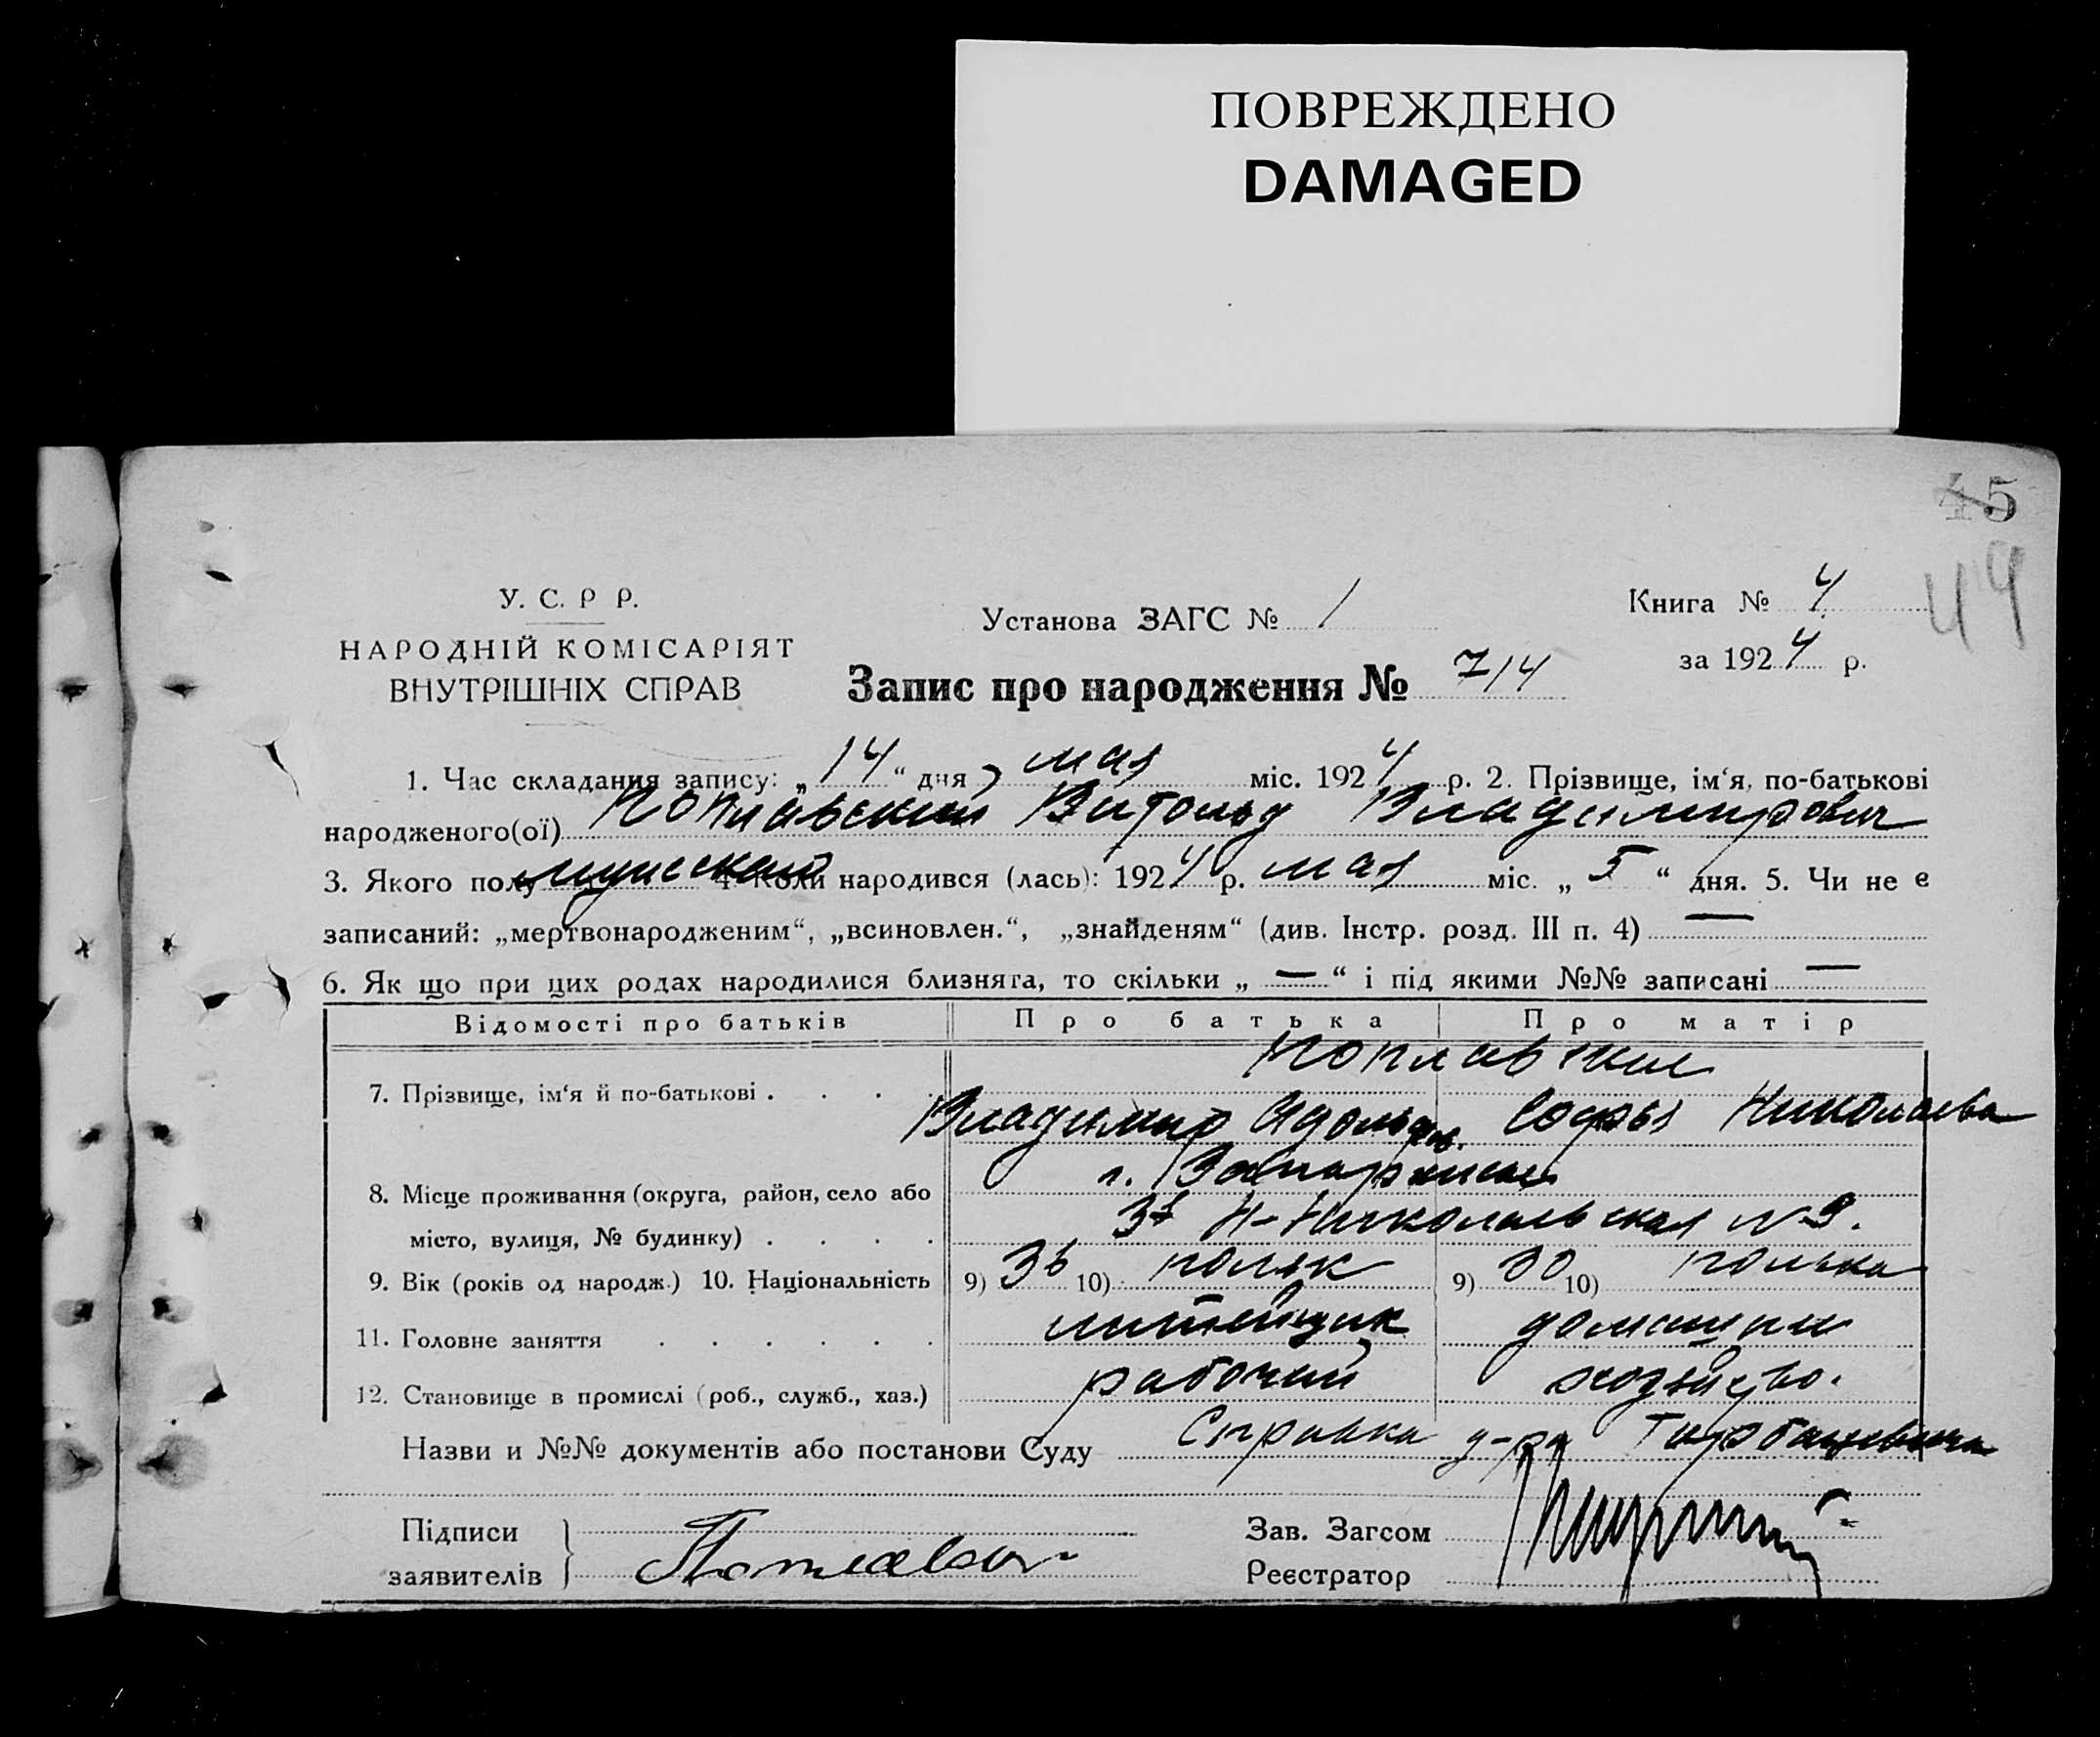 ПОВРЕЖДЕНО
DAMAGED
45
44
У. С. Р Р.
НАРОДНІЙ КОМІСАРІЯТ
ВНУТРІШНІХ СПРАВ
Установа ЗАГС № 1
Книга № 4
за 1924 р.
Запис про народження № 714
1. Час складання запису: „14“ дня мая міс. 1924 р. 2. Прізвище, ім‘я, по-батькові
народженого(ої) Поплавский Витольд Владимирович
3. Якого полу мужской 4. Коли народився (лась): 1924 р. мая міс. „5“ дня. 5. Чи не є
записаний: „мертвонародженим“, „всиновлен.“, „знайденям“ (див. Інстр. розд. III п. 4) —
6. Як що при цих родах народилися близняга, то скільки „—“ і під якими №№ записані —
Відомості про батьків Про батька Про матір
Поплавские
7. Прізвище, ім‘я й по-батькові . . . .
Владимир Адольфов. Софья Николаева
8. Місце проживання (округа, район, село або
місто, вулиця, № будинку) . . . .
г.
Н-Никольская № 9.
9. Вік (років од народж.) 10. Національність 9) 36 10) поляк 9) 30 10) полька
11. Головне заняття . . . . . . литейщик домашнее
12. Становище в промислі (роб., служб., хаз.) рабочий хозяйство.
Назви и №№ документів або постанови Суду Справка д-ра
Підписи
заявителів
Поплавск
Зав. Загсом
Реєстратор